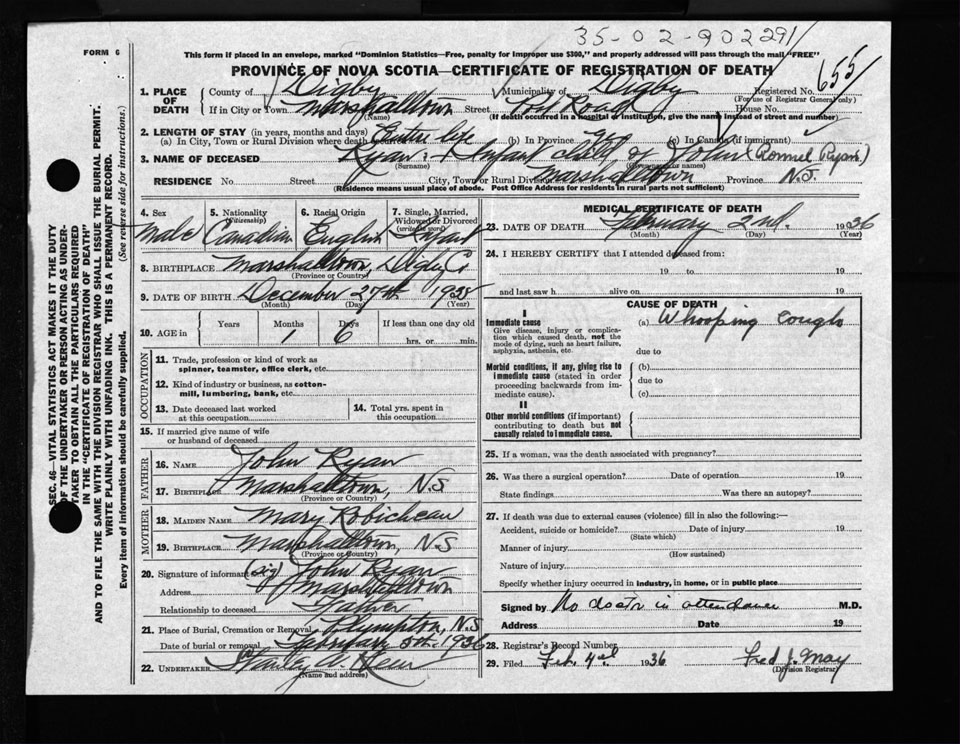 35-02-902291
FORM 6
This form if placed in an envelope, marked "Dominion Statistics—Free, penalty for improper use $300," and properly addressed will pass through the mail "FREE"
PROVINCE OF NOVA SCOTIA—CERTIFICATE OF REGISTRATION OF DEATH
655
1. PLACE OF DEATH
County of Digby Municipality of Digby Registered No.
(For use of Registrar General only)
If in City or Town Marshalltown Street Post Road House No.
(Name) (If death occurred in a hospital or institution, give the name instead of street and number)
2. LENGTH OF STAY (in years, months and days)
(a) In City, Town or Rural Division where death occurred Entire life (b) In Province (c) In Canada (if immigrant)
3. NAME OF DECEASED Ryan: Infant of John (Ryan)
(Surname)
RESIDENCE No. Street City, Town or Rural Division Marshalltown Province N.S.
(Residence means usual place of abode. Post Office Address for residents in rural parts not sufficient)
SEC. 46—VITAL STATISTICS ACT MAKES IT THE DUTY
OF THE UNDERTAKER OR PERSON ACTING AS UNDER-
TAKER TO OBTAIN ALL THE PARTICULARS REQUIRED
IN THE "CERTIFICATE OF REGISTRATION OF DEATH"
AND TO FILE THE SAME WITH THE DIVISION REGISTRAR WHO SHALL ISSUE THE BURIAL PERMIT.
WRITE PLAINLY WITH UNFADING INK. THIS IS A PERMANENT RECORD.
Every item of information should be carefully supplied. (See reverse side for instructions.)
4. Sex Male
5. Nationality (Citizenship) Canadian
6. Racial Origin English
7. Single, Married, Widowed or Divorced (write the word)
8. BIRTHPLACE Marshalltown, Digby Co
(Province or Country)
9. DATE OF BIRTH December 27th 1935
(Month) (Day) (Year)
10. AGE in Years Months Days If less than one day old
1 6 hrs. or min.
OCCUPATION
11. Trade, profession or kind of work as
spinner, teamster, office clerk, etc.
12. Kind of industry or business, as cotton-
mill, lumbering, bank, etc.
13. Date deceased last worked
at this occupation
14. Total yrs. spent in
this occupation
15. If married give name of wife
or husband of deceased
FATHER
16. NAME John Ryan
17. BIRTHPLACE Marshalltown, N.S
(Province or Country)
MOTHER
18. MAIDEN NAME Mary Robicheau
19. BIRTHPLACE Marshalltown, N.S
(Province or Country)
20. Signature of informant (sig) John Ryan
Address Marshalltown
Relationship to deceased Father
21. Place of Burial, Cremation or Removal Plympton, N.S
Date of burial or removal February 1936
22. UNDERTAKER
(Name and address)
MEDICAL CERTIFICATE OF DEATH
23. DATE OF DEATH February 2nd. 1936
(Month) (Day) (Year)
24. I HEREBY CERTIFY that I attended deceased from:
19 to 19
and last saw h alive on 19
CAUSE OF DEATH
I
Immediate cause (a) Whooping cough
Give disease, injury or complica-
tion which caused death, not the
mode of dying, such as heart failure,
asphyxia, asthenia, etc.
due to
Morbid conditions, if any, giving rise to
immediate cause (stated in order
proceeding backwards from im-
mediate cause).
(b)
due to
(c)
II
Other morbid conditions (if important)
contributing to death but not
causally related to immediate cause.
25. If a woman, was the death associated with pregnancy?
26. Was there a surgical operation? Date of operation 19
State findings Was there an autopsy?
27. If death was due to external causes (violence) fill in also the following:—
Accident, suicide or homicide? Date of injury 19
(State which)
Manner of injury
(How sustained)
Nature of injury
Specify whether injury occurred in industry, in home, or in public place
Signed by No doctor in attendance M.D.
Address Date 19
28. Registrar's Record Number
29. Filed Feb. 1936 Fred J. May
(Division Registrar)